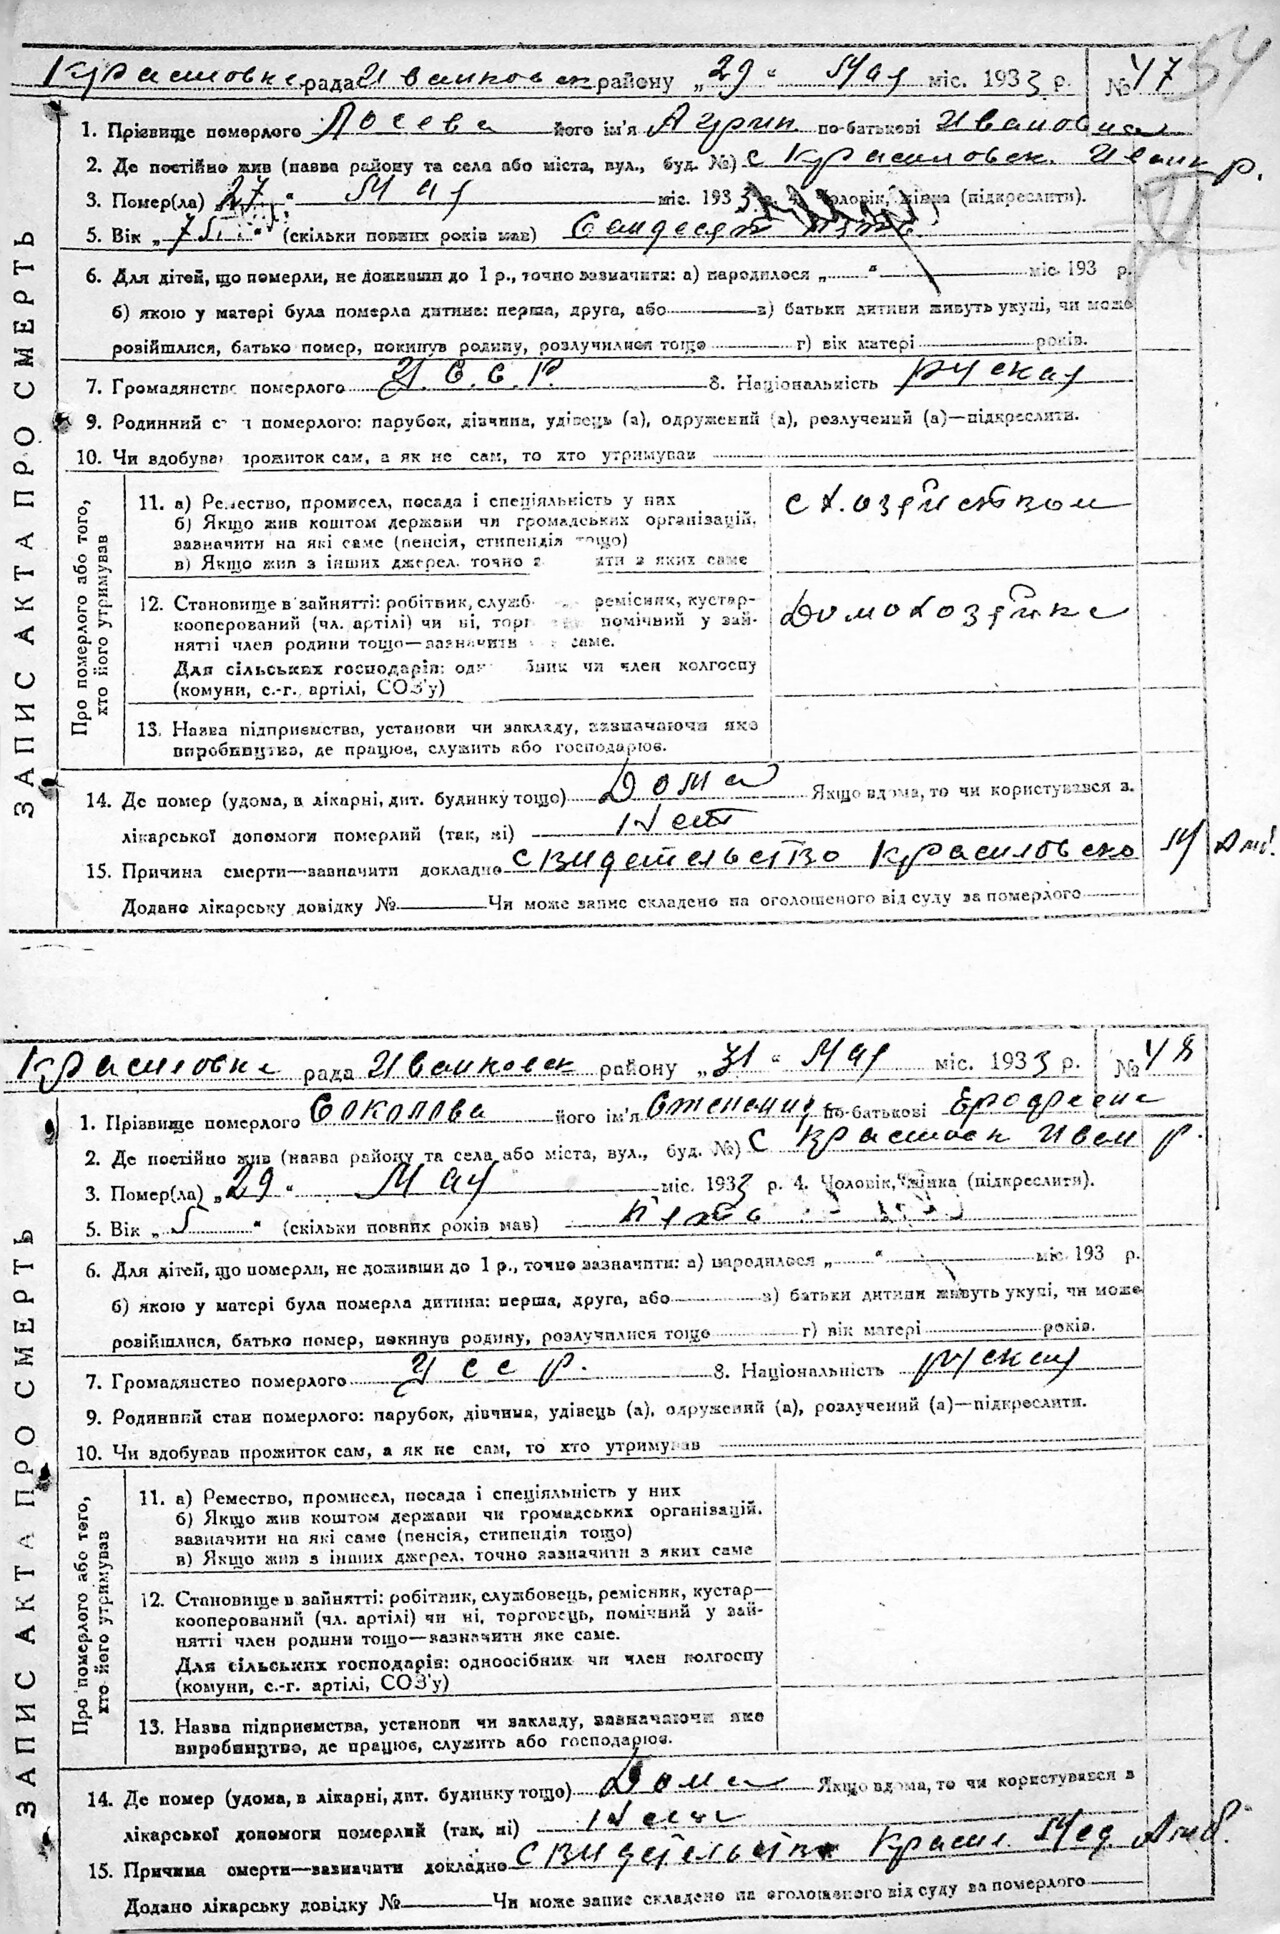 54
Красиловка рада Иванковск району „29“ Мая міс. 1933 р. № 47
1. Прізвище померлого Лосева його ім'я по-батькові Ивановна
2. Де постійно жив (назва району та села або міста, вул., буд. №) с Красиловск. Иванк р.
3. Помер(ла) „27“ Мая міс. 1933 р. 4. Чоловік, жінка (підкреслити).
5. Вік „75“ (скільки повних років мав) Семдесят пять
6. Для дітей, що померли, не доживши до 1 р., точно зазначити: а) народилося „ “ міс. 193 р.
б) якою у матері була померла дитина: перша, друга, або в) батьки дитини живуть укупі, чи може
розійшлися, батько помер, покинув родину, розлучилися тощо г) вік матері років.
7. Громадянство померлого У.С.С.Р. 8. Національність руская
9. Родинний ст н померлого: парубок, дівчина, удівець (а), одружений (а), розлучений (а)—підкреслити.
10. Чи вдобував прожиток сам, а як не сам, то хто утримував
ЗАПИС АКТА ПРО СМЕРТЬ
Про померлого або того, хто його утримував
11. а) Ремество, промисел, посада і спеціяльність у них
б) Якщо жив коштом держави чи громадських організацій,
зазначити на які саме (пенсія, стипендія тощо)
в) Якщо жив з інших джерел, точно з ити з яких саме
с хозяйством
12. Становище в зайнятті: робітник, служб ремісник, кустар-
кооперований (чл. артілі) чи ні, торг помічний у зай-
нятті член родини тощо—зазначити саме.
Для сільських господарів: од бник чи член колгоспу
(комуни, с.-г. артілі, СОЗ'у)
Домохозяйка
13. Назва підприємства, установи чи закладу, зазначаючи яке
виробництво, де працює, служить або господарює.
14. Де помер (удома, в лікарні, дит. будинку тощо) Дома Якщо вдома, то чи користувався з.
лікарської допомоги померлий (так, ні) Нет
15. Причина смерти—зазначити докладно свидетельство Красиловско М Амб.
Додано лікарську довідку № Чи може запис складено на оголошеного від суду за померлого
Красиловка рада Иванковск району „31“ Мая міс. 1933 р. № 48
1. Прізвище померлого Соколова його ім'я Степанида по-батькові
2. Де постійно жив (назва району та села або міста, вул., буд. №) с Красилоск Иван р.
3. Помер(ла) „29“ Мая міс. 1933 р. 4. Чоловік, жінка (підкреслити).
5. Вік „5“ (скільки повних років мав) пять
6. Для дітей, що померли, не доживши до 1 р., точно зазначити: а) народилося „ “ міс. 193 р.
б) якою у матері була померла дитина: перша, друга, або в) батьки дитини живуть укупі, чи може
розійшлися, батько помер, покинув родину, розлучилися тощо г) вік матері років.
7. Громадянство померлого УССР. 8. Національність руская
9. Родинний стан померлого: парубок, дівчина, удівець (а), одружений (а), розлучений (а)—підкреслити.
10. Чи вдобував прожиток сам, а як не сам, то хто утримував
ЗАПИС АКТА ПРО СМЕРТЬ
Про померлого або того, хто його утримував
11. а) Ремество, промисел, посада і спеціяльність у них
б) Якщо жив коштом держави чи громадських організацій,
зазначити на які саме (пенсія, стипендія тощо)
в) Якщо жив з інших джерел, точно зазначити з яких саме
12. Становище в зайнятті: робітник, службовець, ремісник, кустар—
кооперований (чл. артілі) чи ні, торговець, помічний у зай-
нятті член родини тощо—зазначити яке саме.
Для сільських господарів: одноосібник чи член колгоспу
(комуни, с.-г. артілі, СОЗ'у)
13. Назва підприємства, установи чи закладу, зазначаючи яке
виробництво, де працює, служить або господарює.
14. Де помер (удома, в лікарні, дит. будинку тощо) Дома Якщо вдома, то чи користувався з
лікарської допомоги померлий (так, ні) Нет
15. Причина смерти—зазначити докладно свидетельство Красил. Мед. Амб.
Додано лікарську довідку № Чи може запис складено на оголошеного від суду за померлого